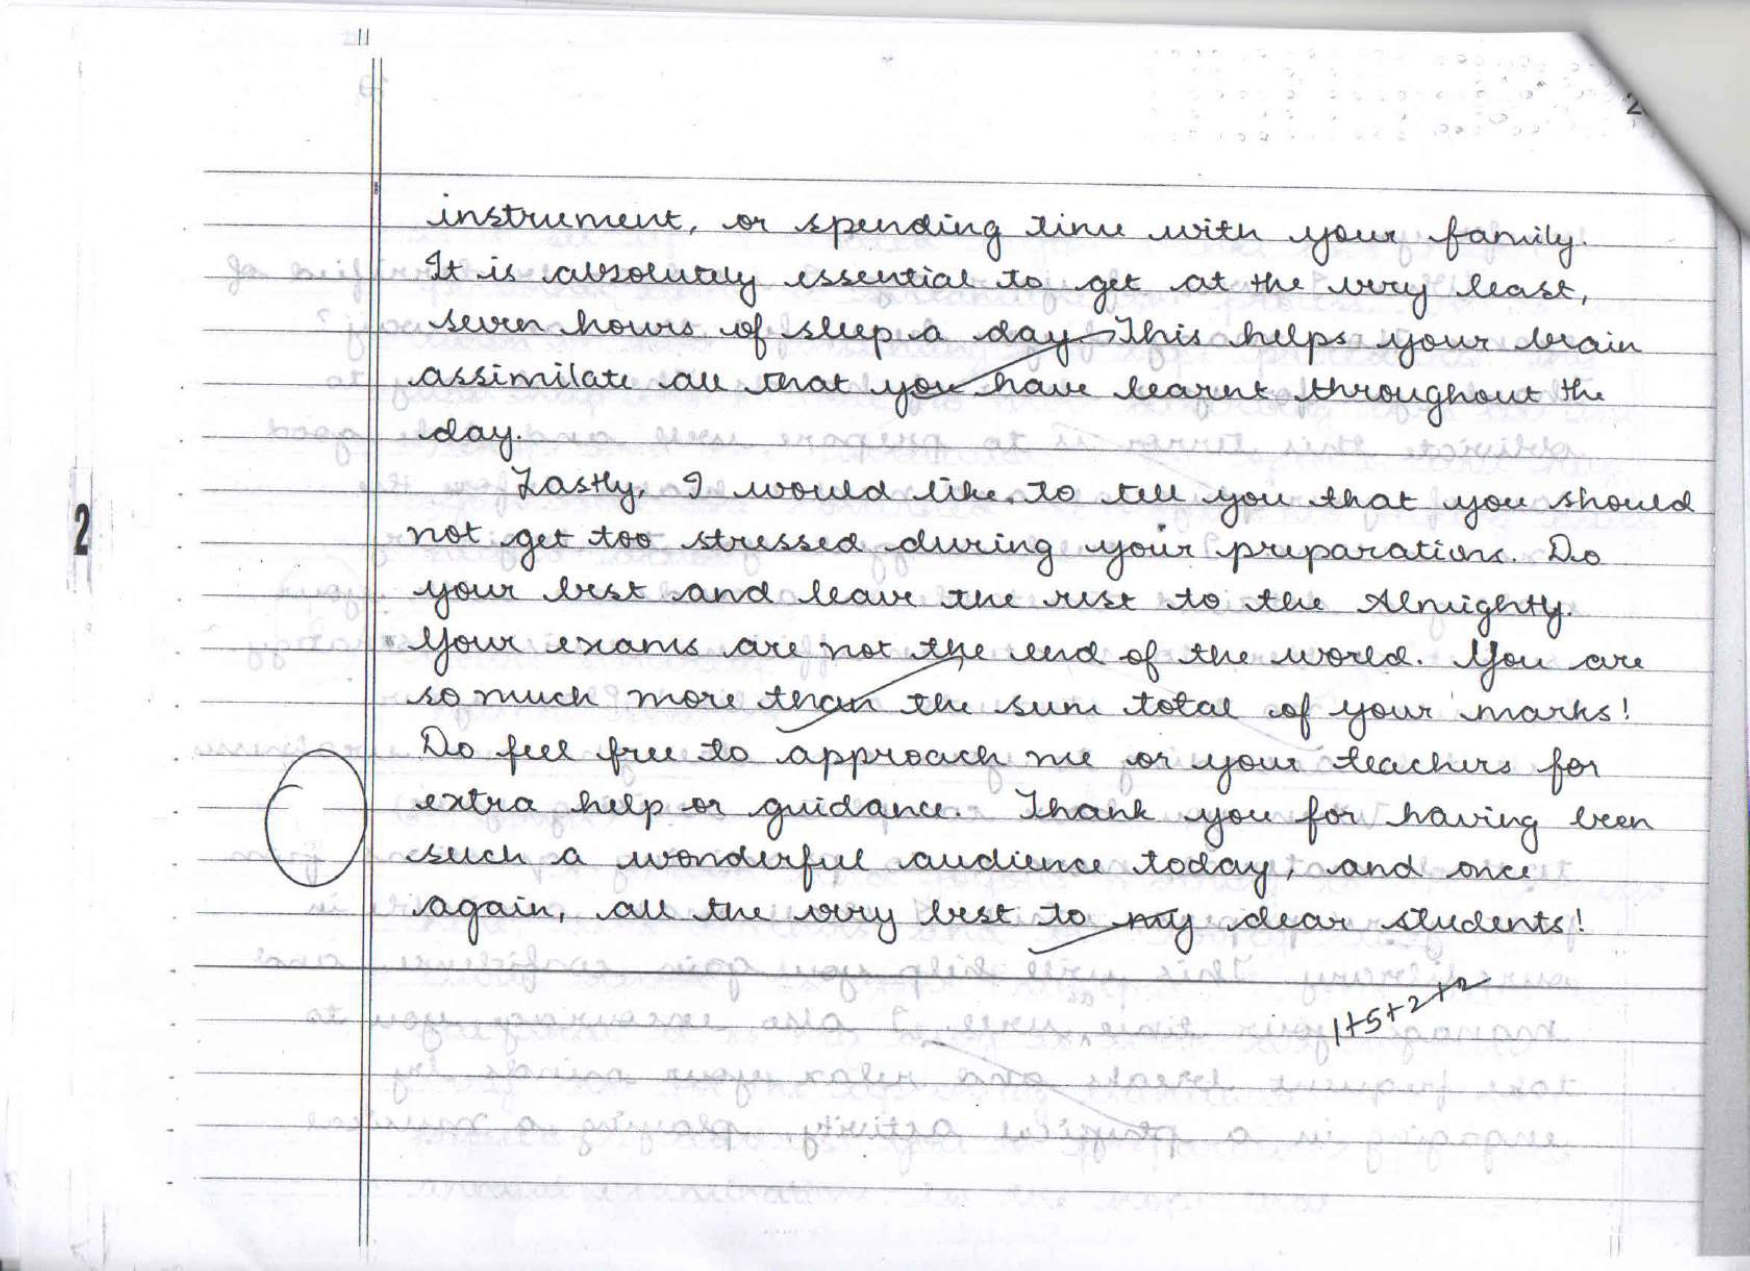 2
instrument, or spending time with your family.
It is absolutely essential to get at the very least,
seven hours of sleep a day. This helps your brain
assimilate all that you have learnt throughout the
day.
Lastly, I would like to tell you that you should
not get too stressed during your preparations. Do
your best and leave the rest to the Almighty.
Your exams are not the end of the world. You are
so much more than the sum total of your marks!
Do feel free to approach me or your teachers for
extra help or guidance. Thank you for having been
such a wonderful audience today, and once
again, all the very best to my dear students!
1+5+2+2
2